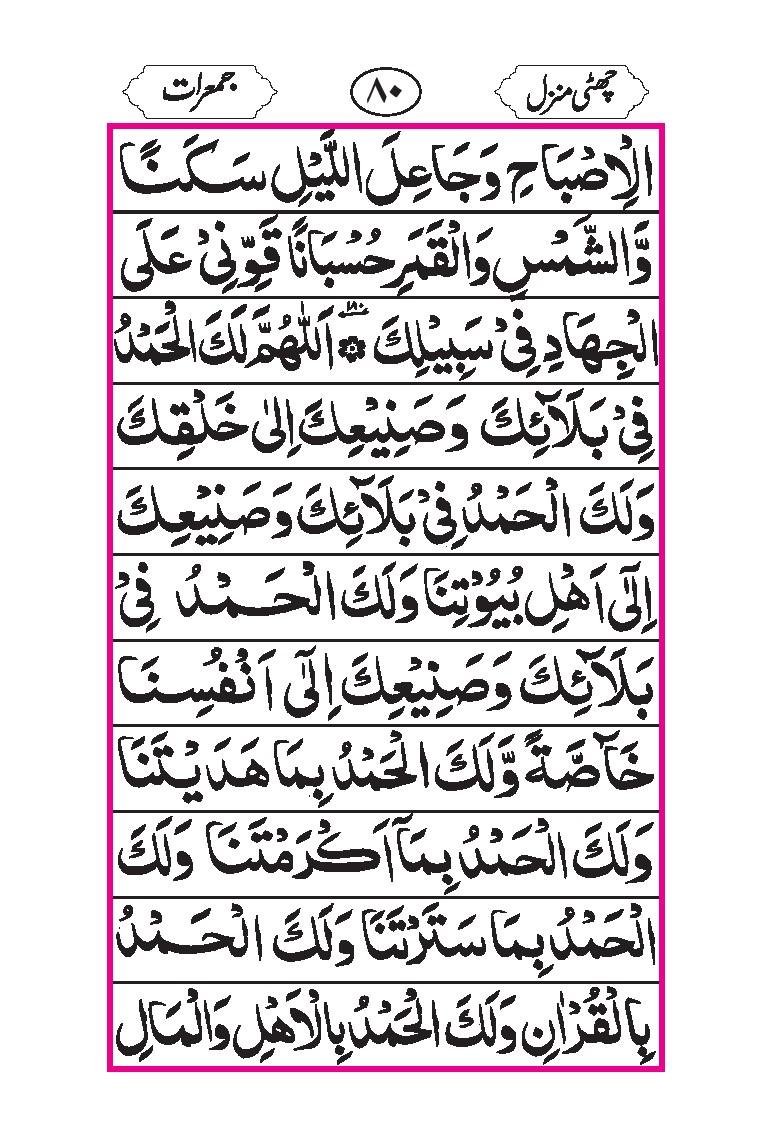 چھٹی منزل ٨٠ جمعرات
الْاِصْبَاحِ وَجَاعِلَ اللَّيْلِ سَكَنًا
وَّالشَّمْسِ وَالْقَمَرِ حُسْبَانًا قَوِّنِيْ عَلَى
الْجِهَادِ فِيْ سَبِيْلِكَ ۞ اَللّٰهُمَّ لَكَ الْحَمْدُ
فِيْ بَلَآئِكَ وَصَنِيْعِكَ اِلٰى خَلْقِكَ
وَلَكَ الْحَمْدُ فِيْ بَلَآئِكَ وَصَنِيْعِكَ
اِلٰٓى اَهْلِ بُيُوْتِنَا وَلَكَ الْحَمْدُ فِيْ
بَلَآئِكَ وَصَنِيْعِكَ اِلٰٓى اَنْفُسِنَا
خَآصَّةً وَّلَكَ الْحَمْدُ بِمَا هَدَيْتَنَا
وَلَكَ الْحَمْدُ بِمَآ اَكْرَمْتَنَا وَلَكَ
الْحَمْدُ بِمَا سَتَرْتَنَا وَلَكَ الْحَمْدُ
بِالْقُرْاٰنِ وَلَكَ الْحَمْدُ بِالْاَهْلِ وَالْمَالِ